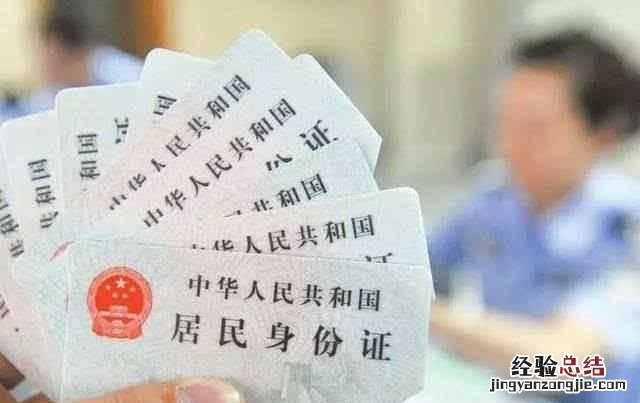 中华人民共和国
居民身份证
中华人民共和国
证
中华人民共和国
证
中华人民共和国
份证
中华人民共和国
和国
和国
经验总结
jingyanzongjie.com